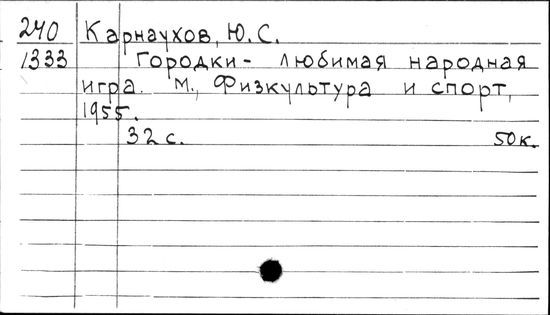 240 Карнаухов, Ю.С.
1333 Городки - любимая народная
игра. М., Физкультура и спорт,
1955.
32 с. 50 к.